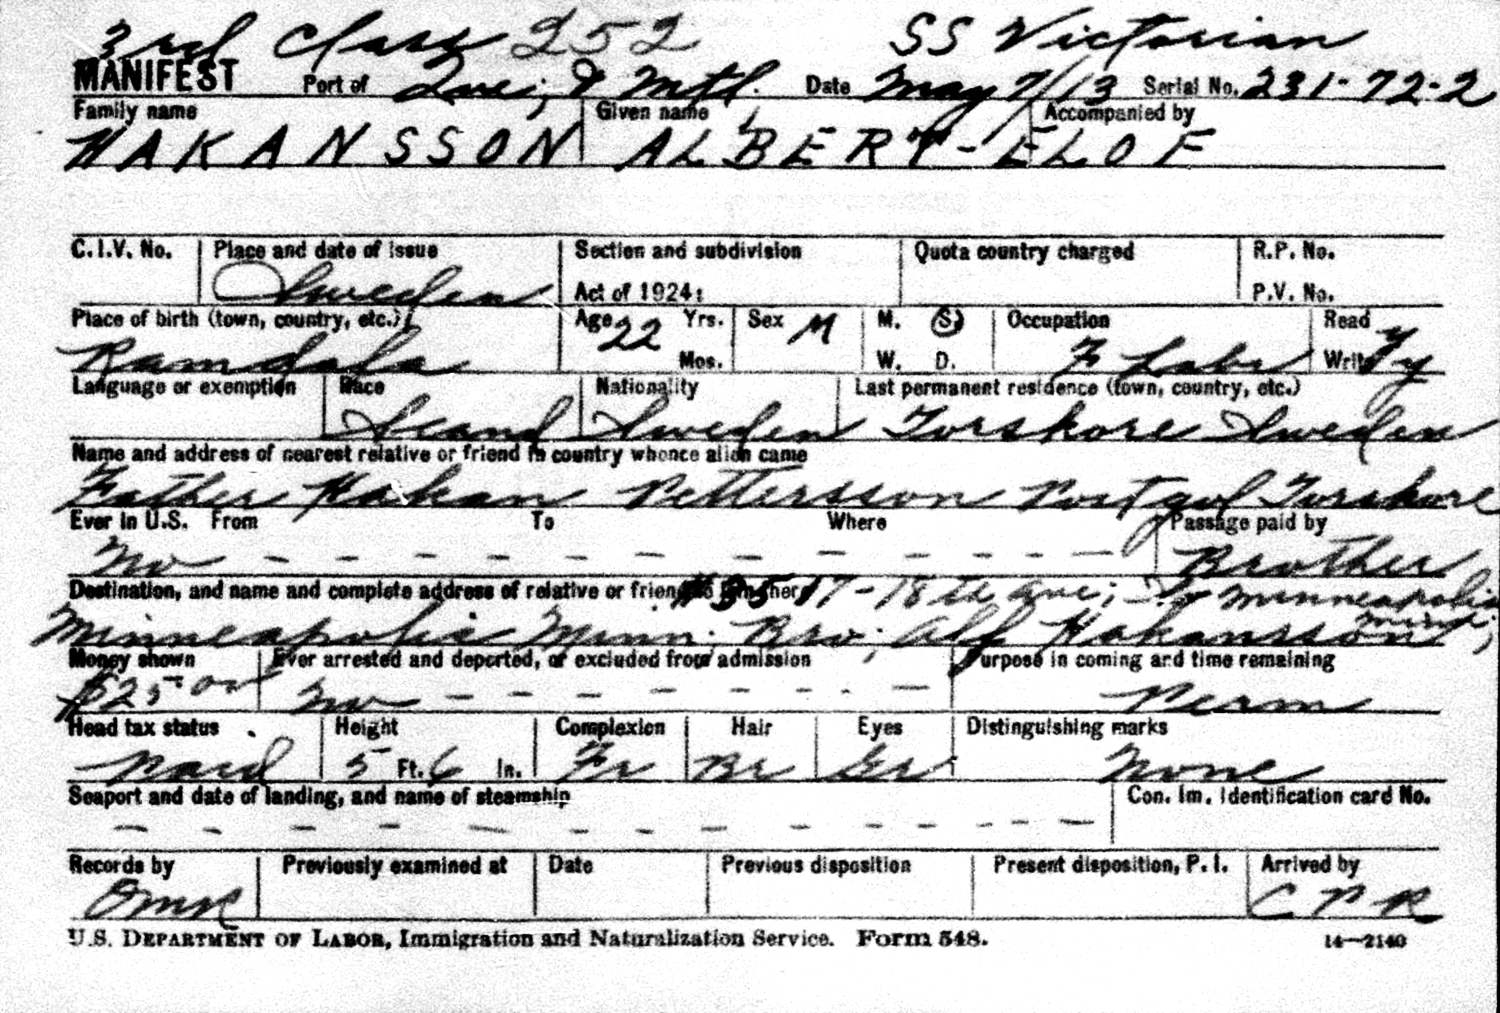 3rd Class 252 SS Victorian
MANIFEST Port of Que; & Mtl. Date May 7/13 Serial No. 231-72-2
Family name Given name Accompanied by
HAKANSSON ALBERT-ELOF
C.I.V. No. Place and date of issue Section and subdivision Quota country charged R.P. No.
Sweden Act of 1924: P.V. No.
Place of birth (town, country, etc.) Age 22 Yrs. Sex M M. (S) Occupation Read y
Ramdala Mos. W. D. F Labr Write y
Language or exemption Race Nationality Last permanent residence (town, country, etc.)
Scand Sweden Torskore Sweden
Name and address of nearest relative or friend in country whence alien came
Father Hakan Pettersson Torskore
Ever in U.S. From To Where Passage paid by
No - - - - - - - - - - - - Brother
Destination, and name and complete address of relative or friend to join there 17-18th Ave; Minneapolis
Minneapolis Minn. Bro; Alf Hakansson Minn;
Money shown Ever arrested and deported, or excluded from admission Purpose in coming and time remaining
$25.00 No - - - - - - - Perm
Head tax status Height Complexion Hair Eyes Distinguishing marks
Paid 5 Ft. 6 In. Fr Br Gr None
Seaport and date of landing, and name of steamship Con. Im. Identification card No.
- - - - - - - - - - - - - -
Records by Previously examined at Date Previous disposition Present disposition, P. I. Arrived by
OMR C P R
U.S. DEPARTMENT OF LABOR, Immigration and Naturalization Service. Form 548. 14—2140